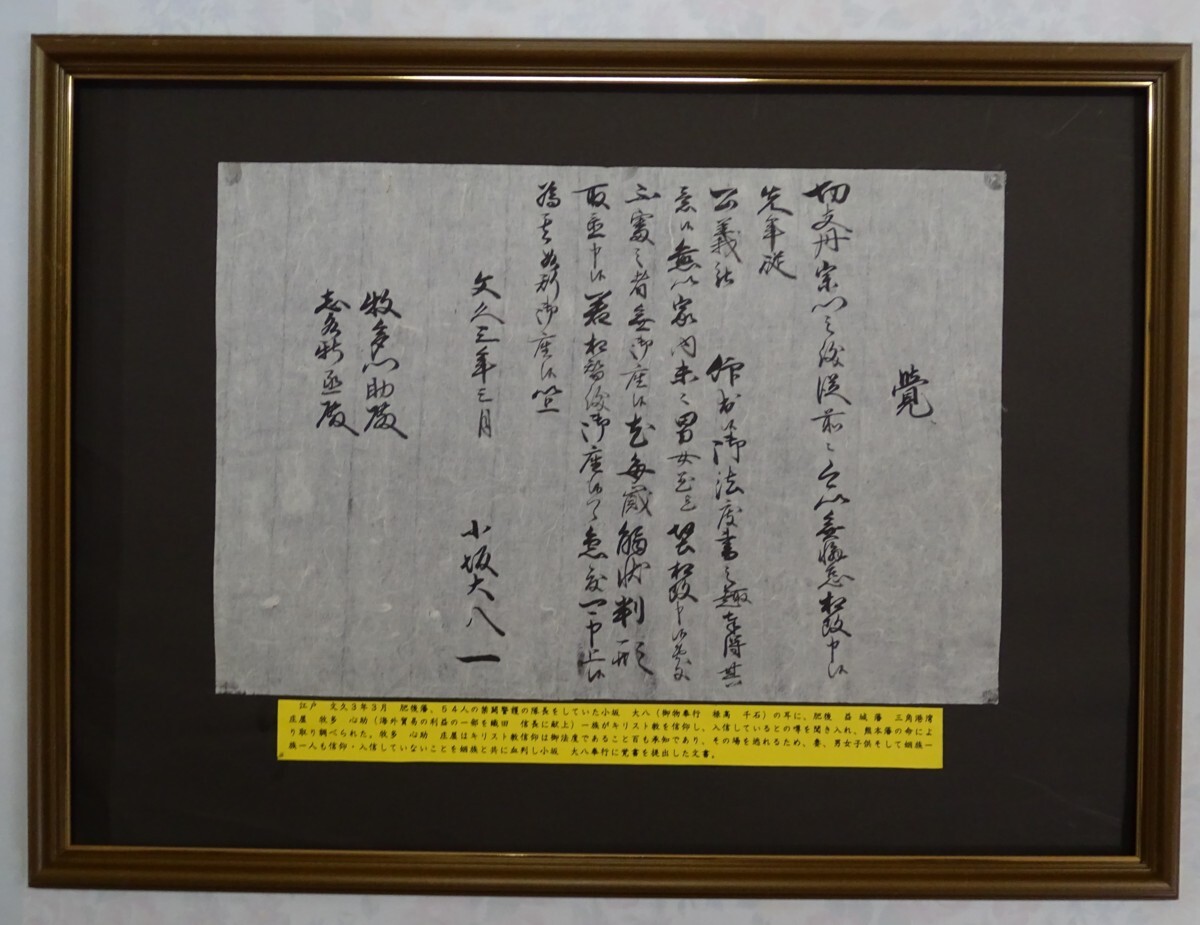 覺
切支丹宗門之儀従前々以無懈怠相改申候
先年従
公義被 御法度書之趣奉得其
意候 家内末々男女
不審之者無御座候 毎歳 判形
取置申候 若相替儀御座候ハヽ急度可申上候
為其如斯御座候以上
文久三年三月
小坂大八
牧多 助殿
殿
江戸 文久3年3月 肥後藩、54人の禁闕警護の隊長をしていた小坂 大八(御物奉行 禄高 千石)の耳に、肥後 益城藩 三角港湾
庄屋 牧多 心助(海外貿易の利益の一部を織田 信長に献上)一族がキリスト教を信仰し、入信しているとの噂を聞き入れ、熊本藩の命によ
り取り調べられた。牧多 心助 庄屋はキリスト教信仰は御法度であること百も承知であり、その場を逃れるため、妻、男女子供そして姻族一
族一人も信仰・入信していないことを姻族と共に血判し小坂 大八奉行に覚書を提出した文書。